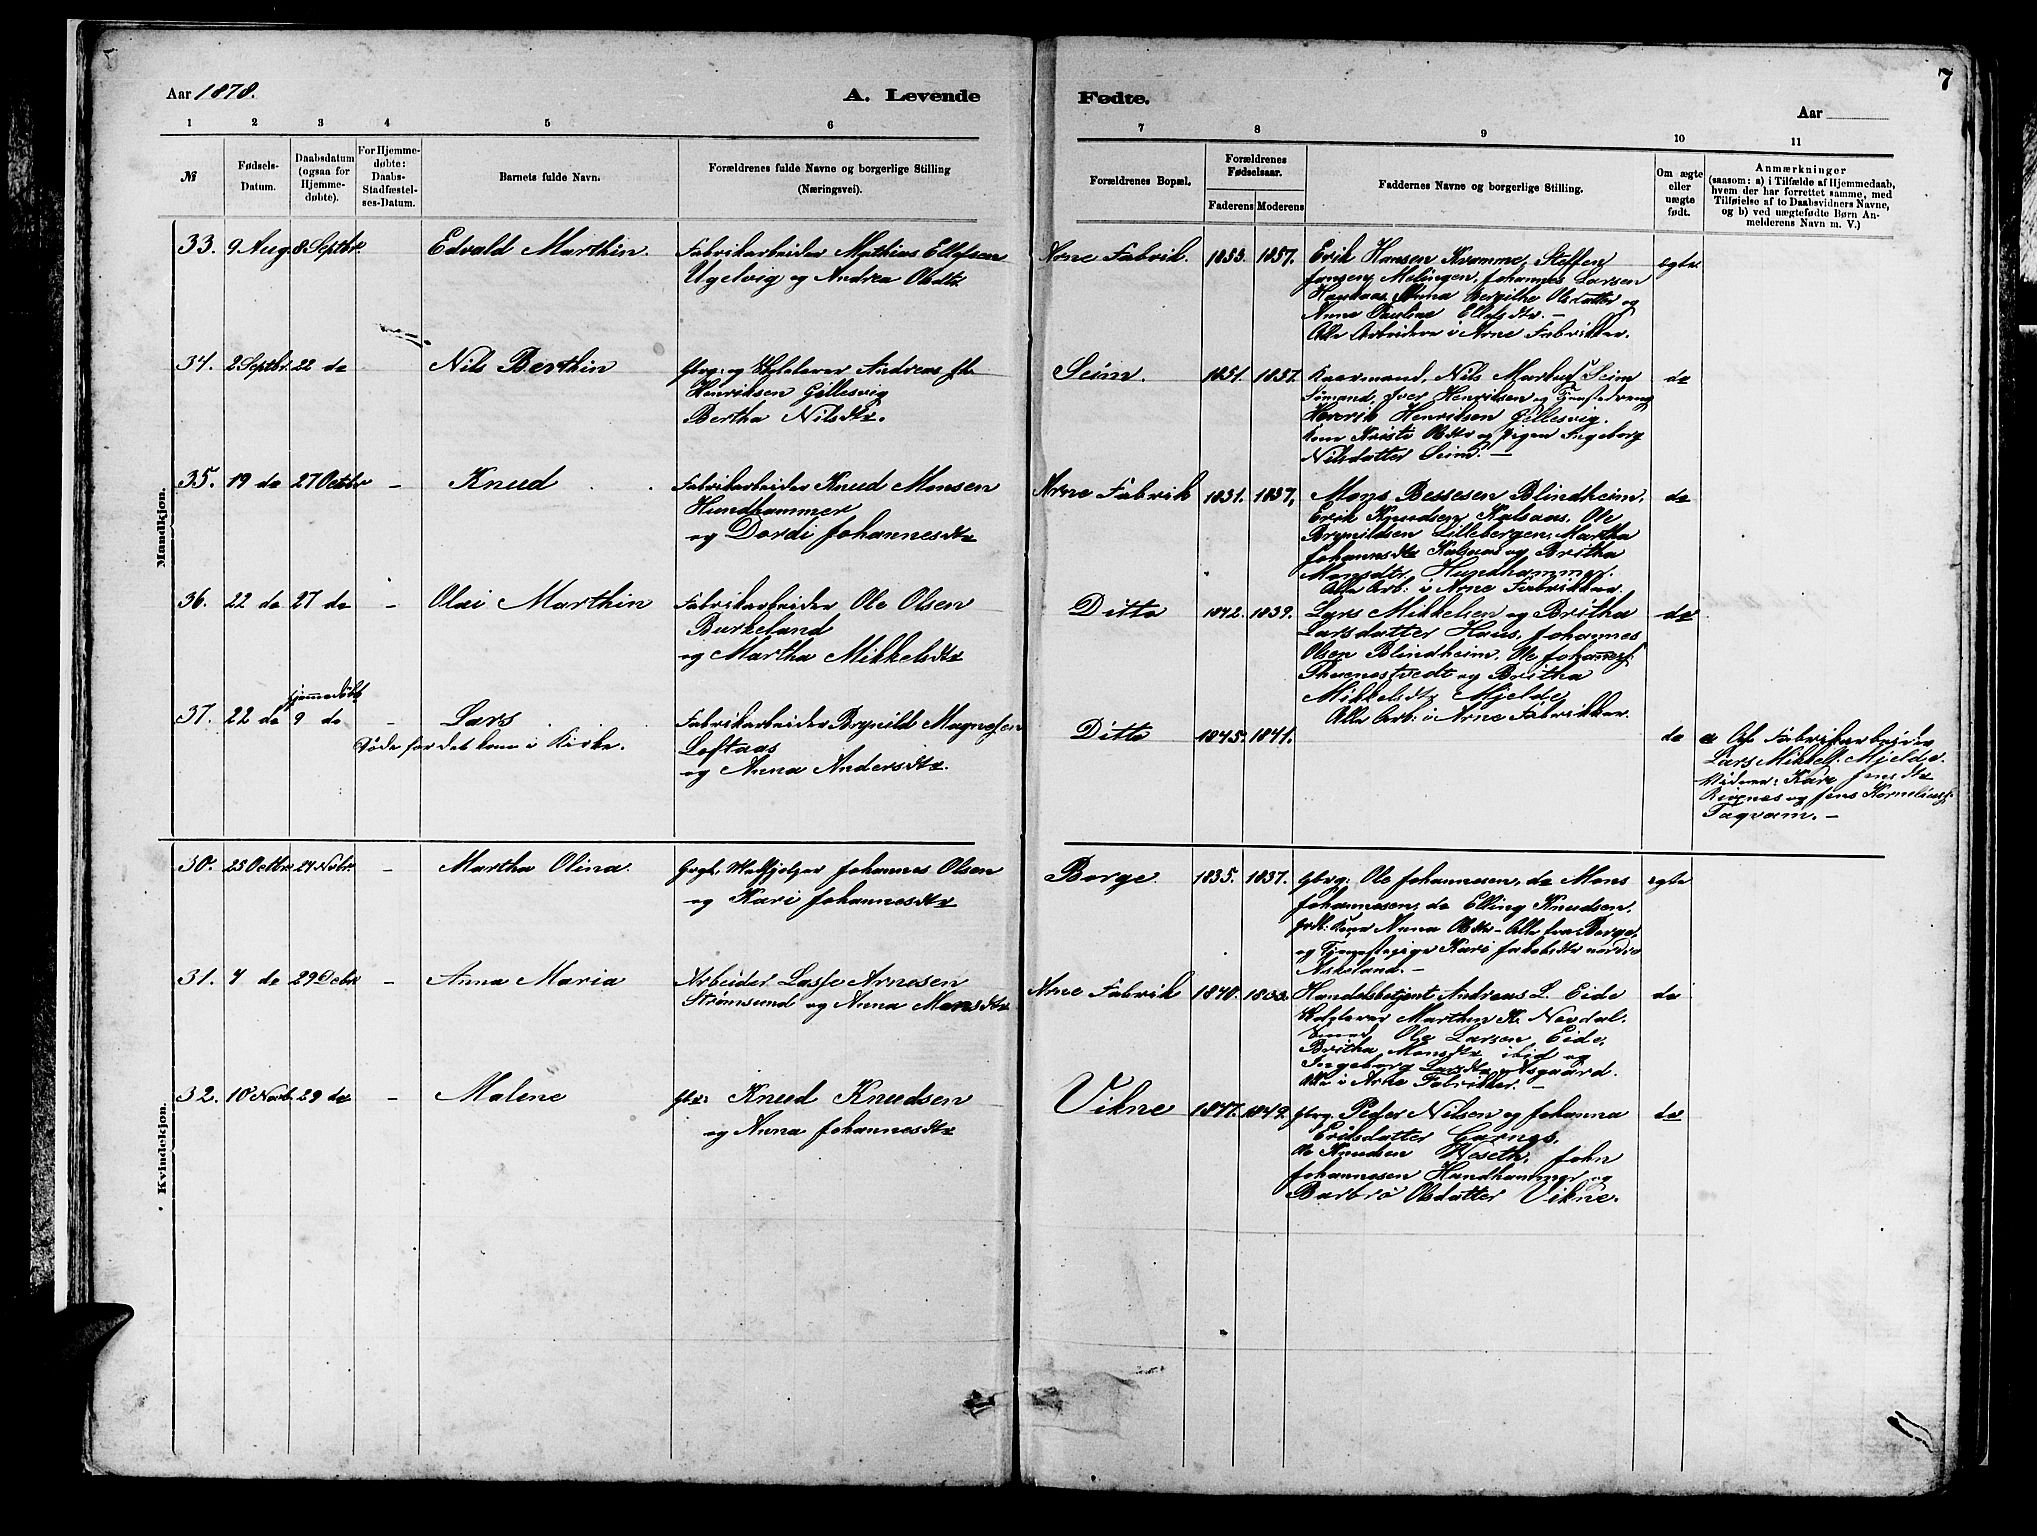 Aar 1878.
A. Levende
Fødte.
Aar
7
1 2 3 4 5 6 7 8 9 10 11
№
Fødsels-
Datum.
Daabsdatum
(ogsaa for
Hjemme-
døbte).
For Hjemme-
døbte:
Daabs-
Stadfæstel-
ses-Datum.
Barnets fulde Navn.
Forældrenes fulde Navne og borgerlige Stilling
(Næringsvei).
Forældrenes Bopæl.
Forældrenes
Fødselsaar.
Faderens Moderens
Faddernes Navne og borgerlige Stilling.
Om ægte
eller
uægte
født.
Anmærkninger
(saasom: a) i Tilfælde af Hjemmedaab,
hvem der har forrettet samme, med
Tilføielse af to Daabsvidners Navne,
og b) ved uægtefødte Børn An-
melderens Navn m. V.)
Mandkjøn.
33. 9 Aug 8 Septbr. Edvald Marthin.
Fabrikarbeider Mathias Ellefsen
Ugelvig og Andrea Olsdtr
Arne Fabrik. 1853. 1857.
Erik Hansen Kvamme, Steffen
Jensen Melingen, Johannes Larsen
Haukaas, Anna Bergithe Olsdatter og
Anne Pauline Ellefsdtr. –
Alle Arbeidere i Arne Fabrikker.
egte
34. 2 Septbr. 22 do Nils Berthin
Gbrg: og Skolelærer Andreas
Henriksen Gillesvig
Bertha Nilsdtr.
Seim. 1851. 1857.
Kaarmand, Nils Seim
Iver Henriksen og Tjenestedreng
Henrik Henriksen Gillesvig.
Kone Kristi Olsdtr og Pigen Ingeborg
Nilsdatter Seim. –
do
35. 19 do 27 Octbr – Knud
Fabrikarbeider Knud Monsen
Hundhammer
og Dordi Johannesdtr
Arne Fabrik 1831. 1837,
Mons Bessesen Blindheim,
Erik Knudsen Kalsaas, Ole
Brynildsen Lillebergen, Martha
Johannesdtr Kalsaas og Britha
Monsdtr. Hundhammer.
Alle Arb: i Arne Fabrikker.
do
36. 22 do 27 do – Olai Marthin
Fabrikarbeider Ole Olsen
Burkeland
og Martha Mikkelsdtr
Ditto 1842. 1839.
Lars Mikkelsen og Britha
Larsdatter Haus, Johannes
Olsen Blindheim, Ole Johannes.
Thunestvedt og Britha
Mikkelsdtr Mjelde
Alle Arb: i Arne Fabrikker.
do
hjemmedøbt
37. 22 do 9 do – Lars
Døde før det kom i Kirke.
Fabrikarbeider Brynild Magnesen
Loftaas
og Anna Andersdtr.
Ditto 1845. 1841.
do
a Af Fabrikarbeider
Lars Mikkels. Mjelde.
Vidner: Kari Jensdtr
Risnes og Jens Kornelius.
Fagvam. –
Kvindekjøn.
30. 25 Octbr 24 Nobr. – Martha Olina.
Johannes Olsen
og Kari Johannesdtr
Borge. 1835. 1837.
Gbrg: Ole Johannesen, do Mons
Johannesen, do Elling Knudsen.
Kone Anna Olsdtr – Alle fra Borge,
og Tjenestepige Kari Jakobsdtr nordre
Askeland. –
egte
31. 4 do 29 Debr. – Anna Maria
Arbeider. Lasse Arnesen
Strømsund og Anna Monsdtr
Arne Fabrik 1840. 1833.
Handelsbetjent Andreas L. Eide
Skolelærer Marthin K. Nevdal.
Ole Larsen Eide,
Britha Monsdtr ibid og
Ingeborg Larsdtr Aasgaard.
Alle i Arne Fabrikker. –
do
32. 10 Novbr. 29 do – Malene
Gbr: Knud Knudsen
og Anna Johannesdtr
Vikne 1847. 1849.
Gbrg. Peder Nilsen og Johanna
Eriksdatter Garnes,
Ole Knudsen Weseth, John
Johannesen Hundhammer og
Barbro Olsdatter Vikne.
do